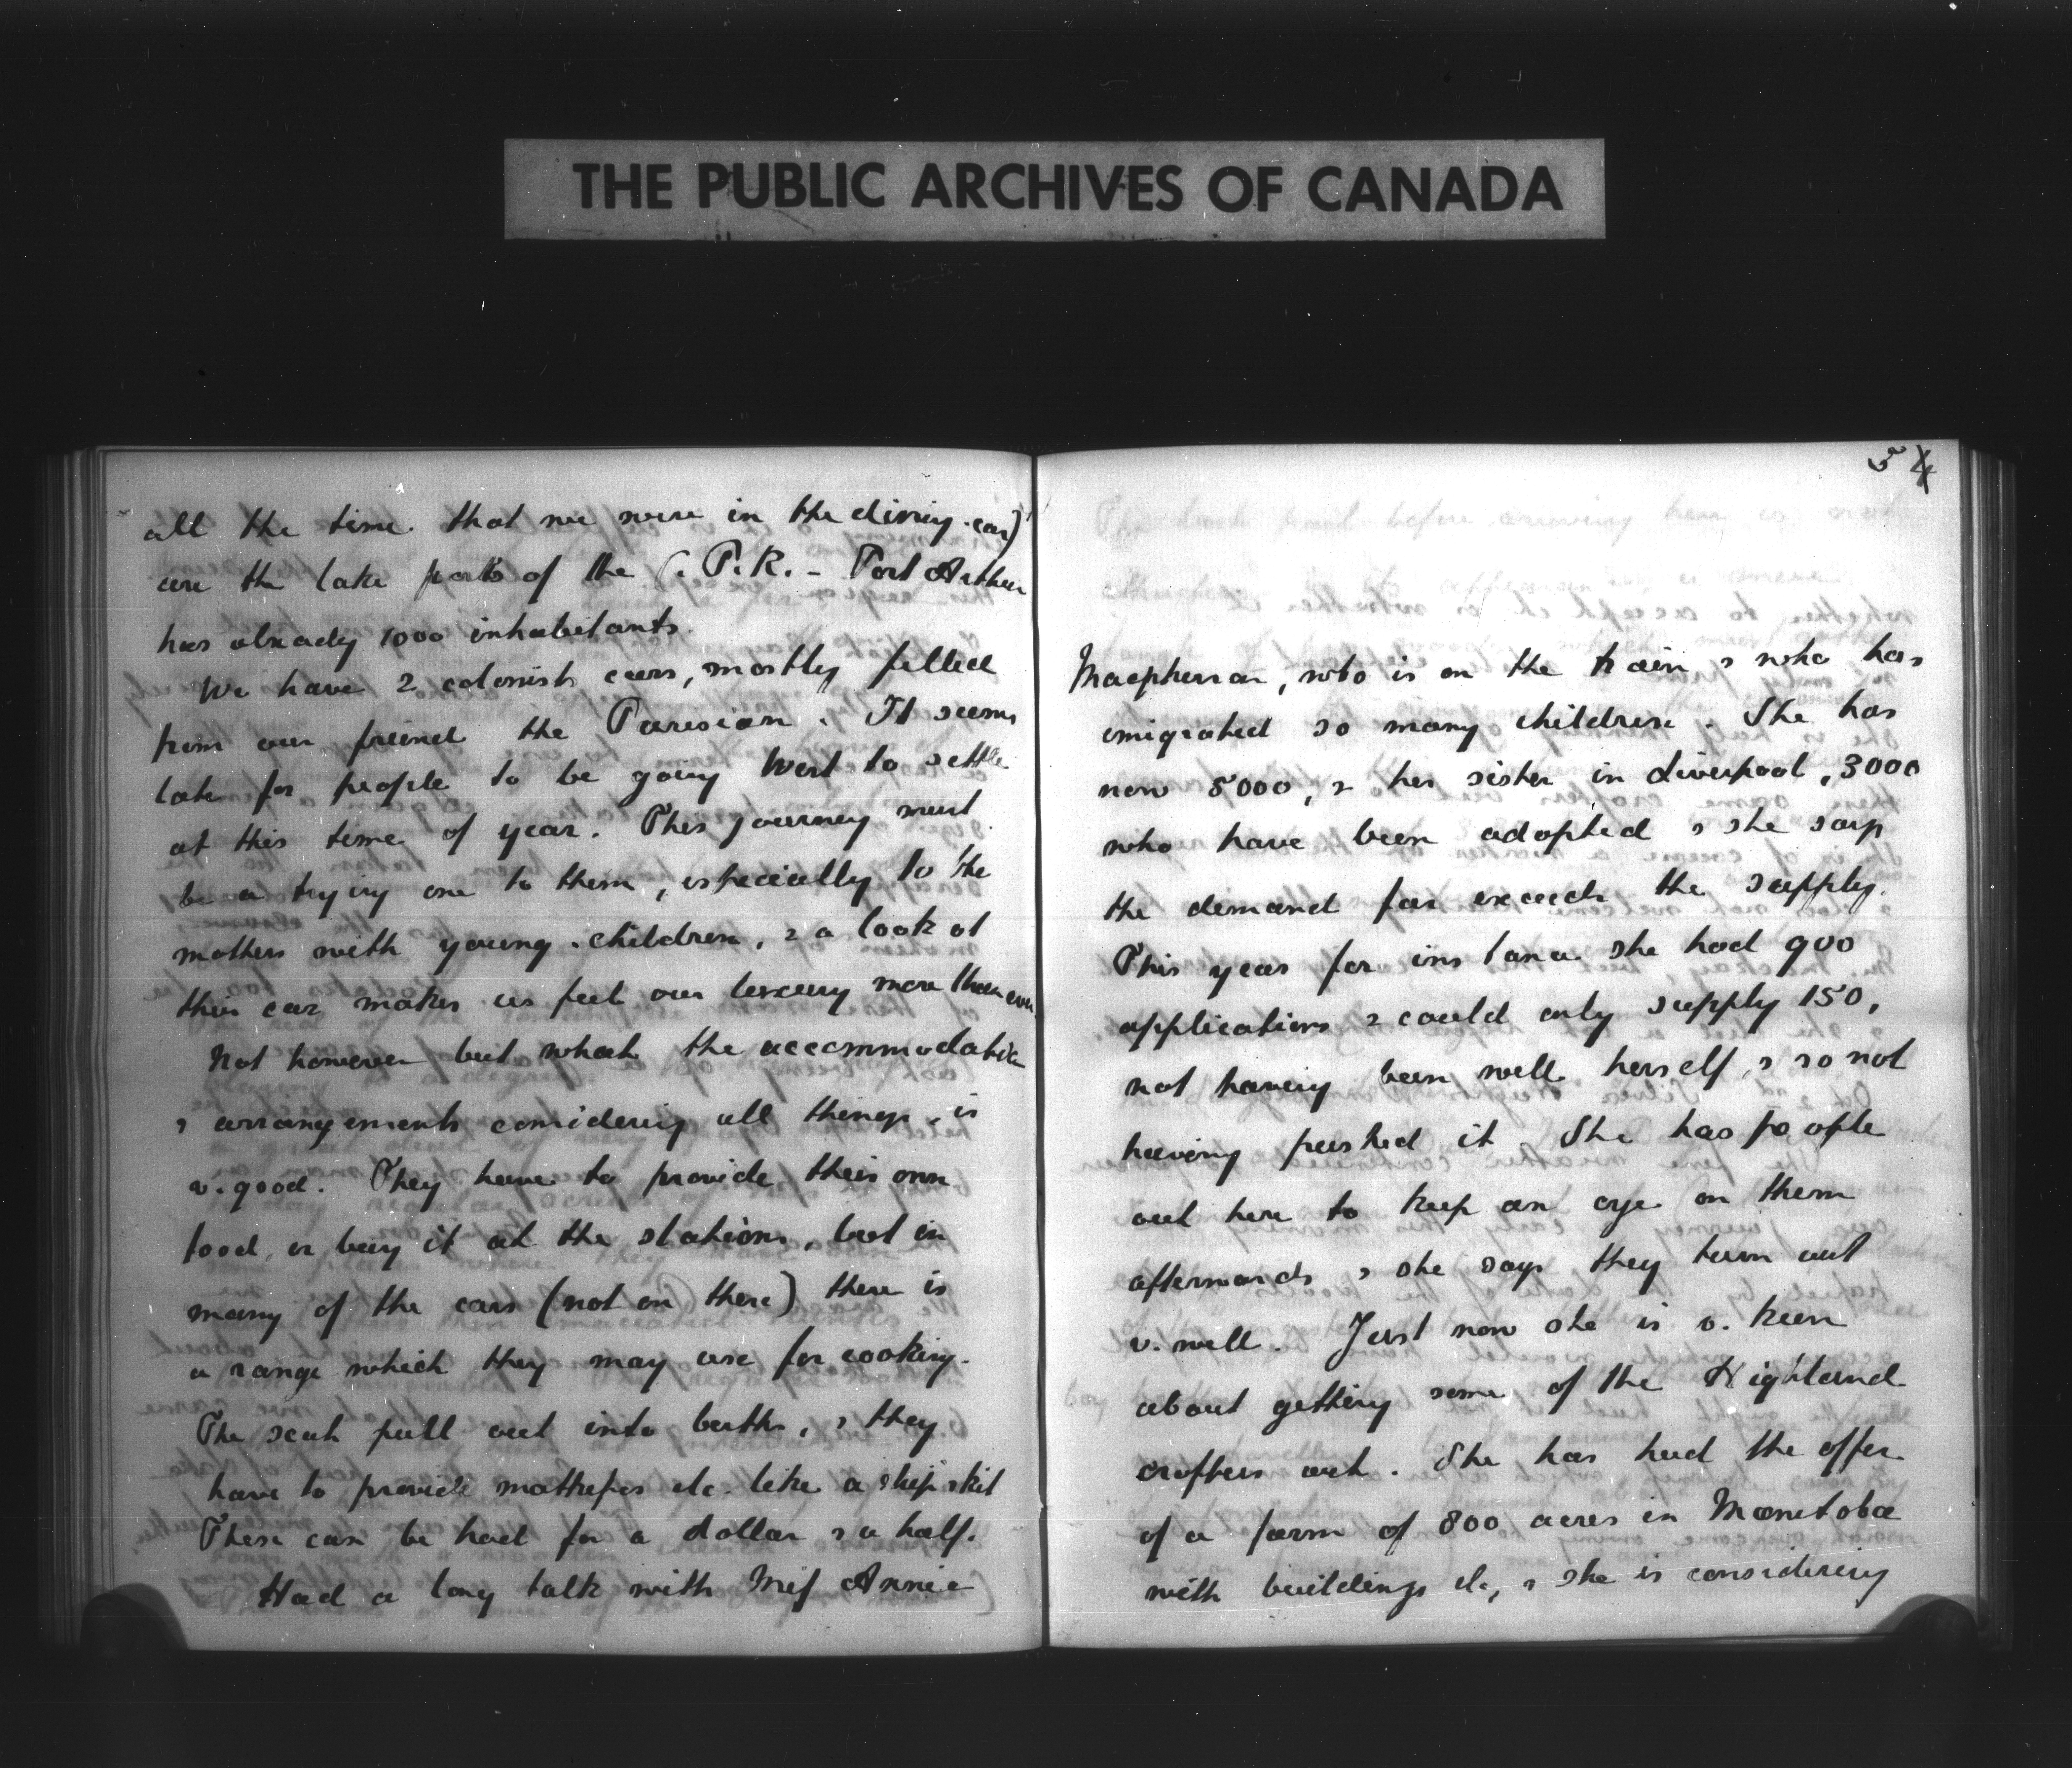 THE PUBLIC ARCHIVES OF CANADA
all the time that we were in the dining-car)
are the lake ports of the C.P.R. - Port Arthur
has already 1000 inhabitants.
We have 2 colonist cars, mostly filled
from our friend the Parisian. It seems
late for people to be going West to settle
at this time of year. This journey must
be a trying one to them, especially to the
mothers with young children, & a look at
their car makes us feel our luxury more than ever
Not however but what the accommodation
& arrangements considering all things, is
v. good. They have to provide their own
food or buy it at the stations, but in
many of the cars (not on these) there is
a range which they may use for cooking.
The seats pull out into berths, & they
have to provide mattresses etc. like a ship's kit
These can be had for a dollar & a half.
Had a long talk with Miss Annie
54
Macpherson, who is on the train & who has
emigrated so many children. She has
now 5000, & her sister in Liverpool, 3000
who have been adopted & she says
the demand far exceeds the supply.
This year for instance she had 900
applications & could only supply 150,
not having been well herself, & so not
having pushed it. She has people
out here to keep an eye on them
afterwards & she says they turn out
v. well. Just now she is v. keen
about getting some of the Highland
crofters out. She has had the offer
of a farm of 800 acres in Manitoba
with buildings etc, & she is considering